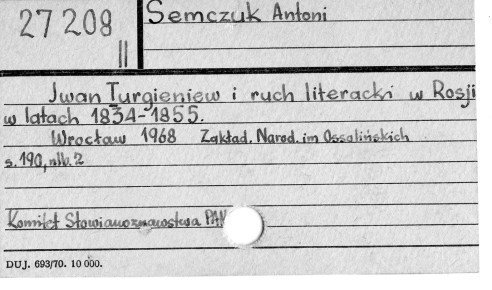 27208
II
Semczuk Antoni
Iwan Turgieniew i ruch literacki w Rosji
w latach 1834-1855.
Wrocław 1968 Zakład. Narod. im Ossolińskich
s. 190, nlb. 2
Komitet Słowianoznawstwa PAN
DUJ. 693/70. 10 000.